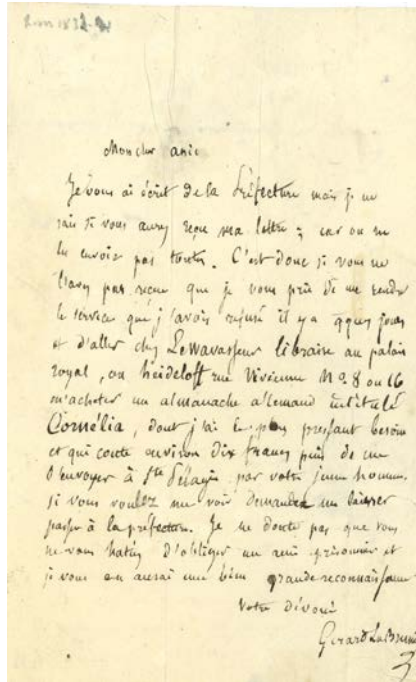 Mon cher ami
Je vous ai écrit de la Préfecture mais je ne
sais si vous aurez reçu ma lettre ; car on ne
les envoie pas toutes. C'est donc si vous ne
l'avez pas reçue que je vous prie de me rendre
le service que j'avais refusé il y a qques jours
et d'aller chez Lewavasseur libraire au palais
royal, ou heideloff rue Vivienne No. 8 ou 16
m'acheter un almanache allemand intitulé
Cornélia, dont j'ai le plus pressant besoin
et qui coute environ dix francs puis de me
l'envoyer à Ste Pélagie par votre jeune homme.
si vous voulez me voir demandez un laisser
passer à la préfecture. Je ne doute pas que vous
ne vous hatiez d'obliger un ami prisonnier et
je vous en aurai une bien grande reconnaissance
Votre dévoué
Gérard